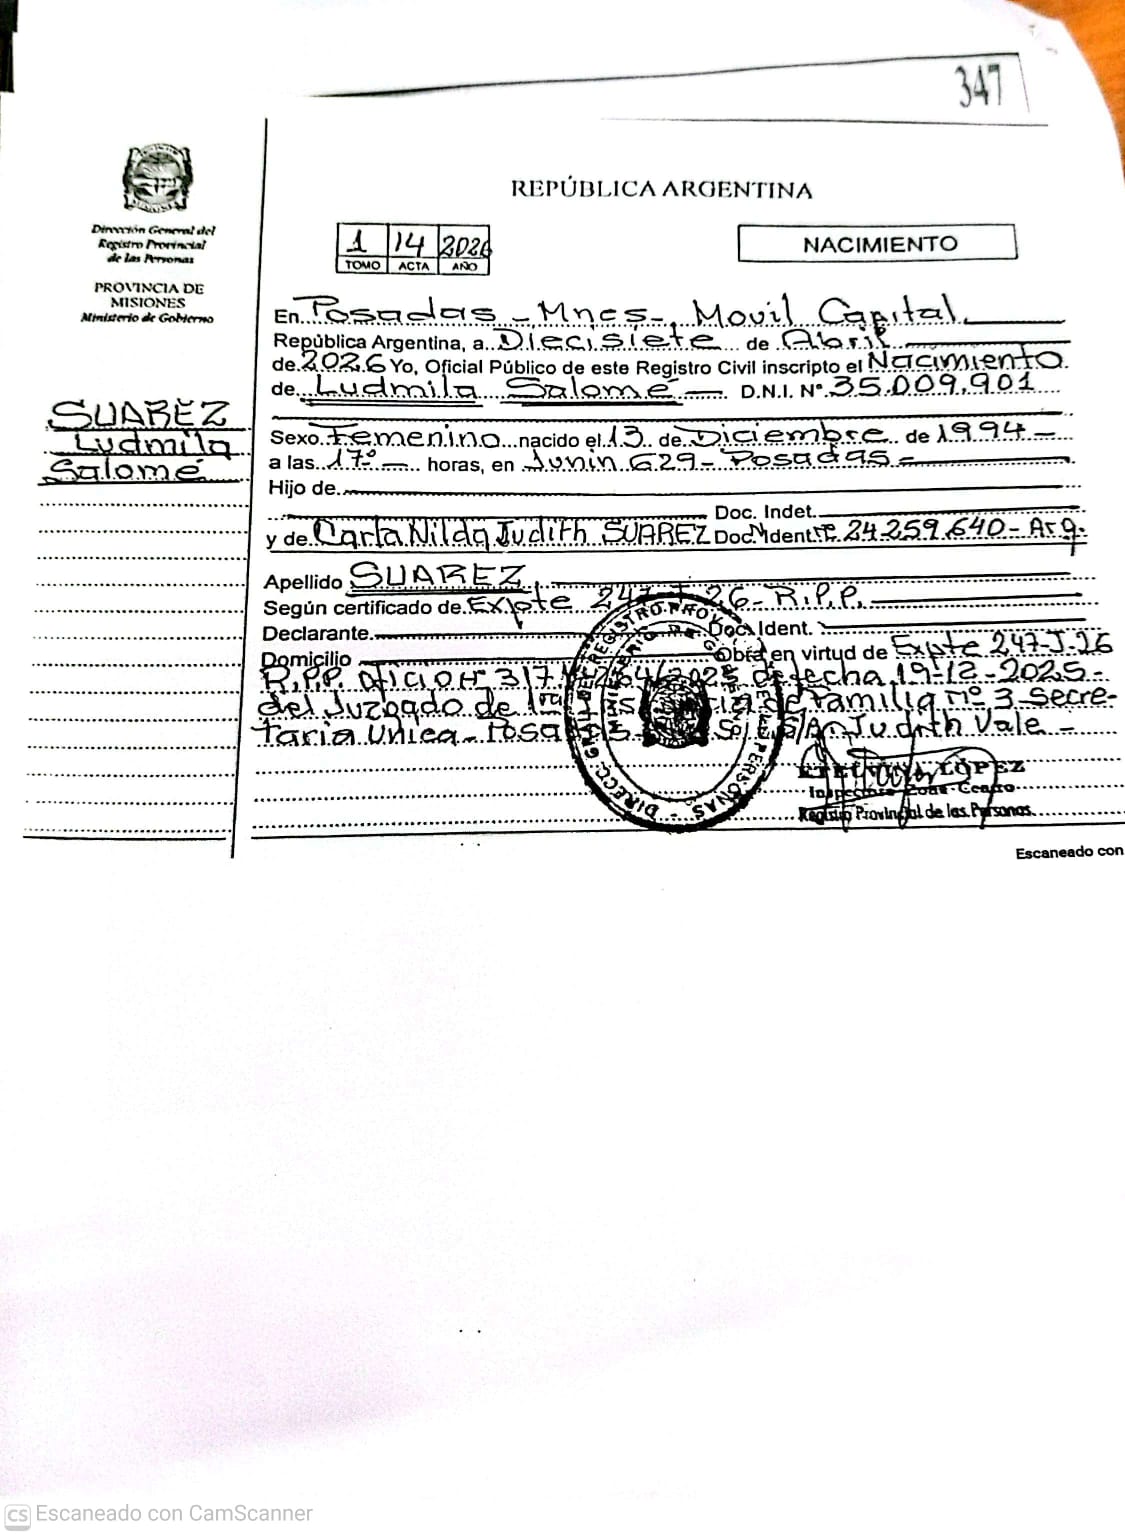 347
REPÚBLICA ARGENTINA
Dirección General del
Registro Provincial
de las Personas
PROVINCIA DE
MISIONES
Ministerio de Gobierno
1 14 2026
TOMO ACTA AÑO
NACIMIENTO
SUAREZ
Ludmila
Salomé
En Posadas - Mnes -, Movil Capital.
República Argentina, a Diecisiete de Abril
de 2026 Yo, Oficial Público de este Registro Civil inscripto el Nacimiento
de Ludmila Salomé - D.N.I. Nº 35.009.901
Sexo Femenino nacido el 13 de Diciembre de 1994 -
a las 17º - horas, en Junin 629 - Posadas -
Hijo de
Doc. Indet.
y de Carla Nilda Judith SUAREZ Doc. Ident. Nº 24.259.640 - Arg.
Apellido SUAREZ
Según certificado de Expte 247 26 - R.P.P.
Declarante Doc. Ident.
Domicilio Obra en virtud de Expte 247-J-26
R.P.P. Oficio Nº 317 de fecha 19-12-2025 -
del Juzgado de 1ra de Familia Nº 3 Secre-
taria Unica - Judith Vale -
DIRECC. GRAL. DEL REGISTRO PROV. DE LAS PERSONAS
MINISTERIO DE GOBIERNO
LÓPEZ
Inspectora Zona Centro
Registro Provincial de las Personas
Escaneado con
CS Escaneado con CamScanner